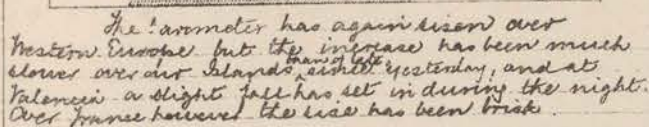 The Barometer has again risen over
Western Europe but the increase has been much
slower over our Islands than of late since yesterday, and at
Valencia a slight fall has set in during the night.
Over France however the rise has been brisk.